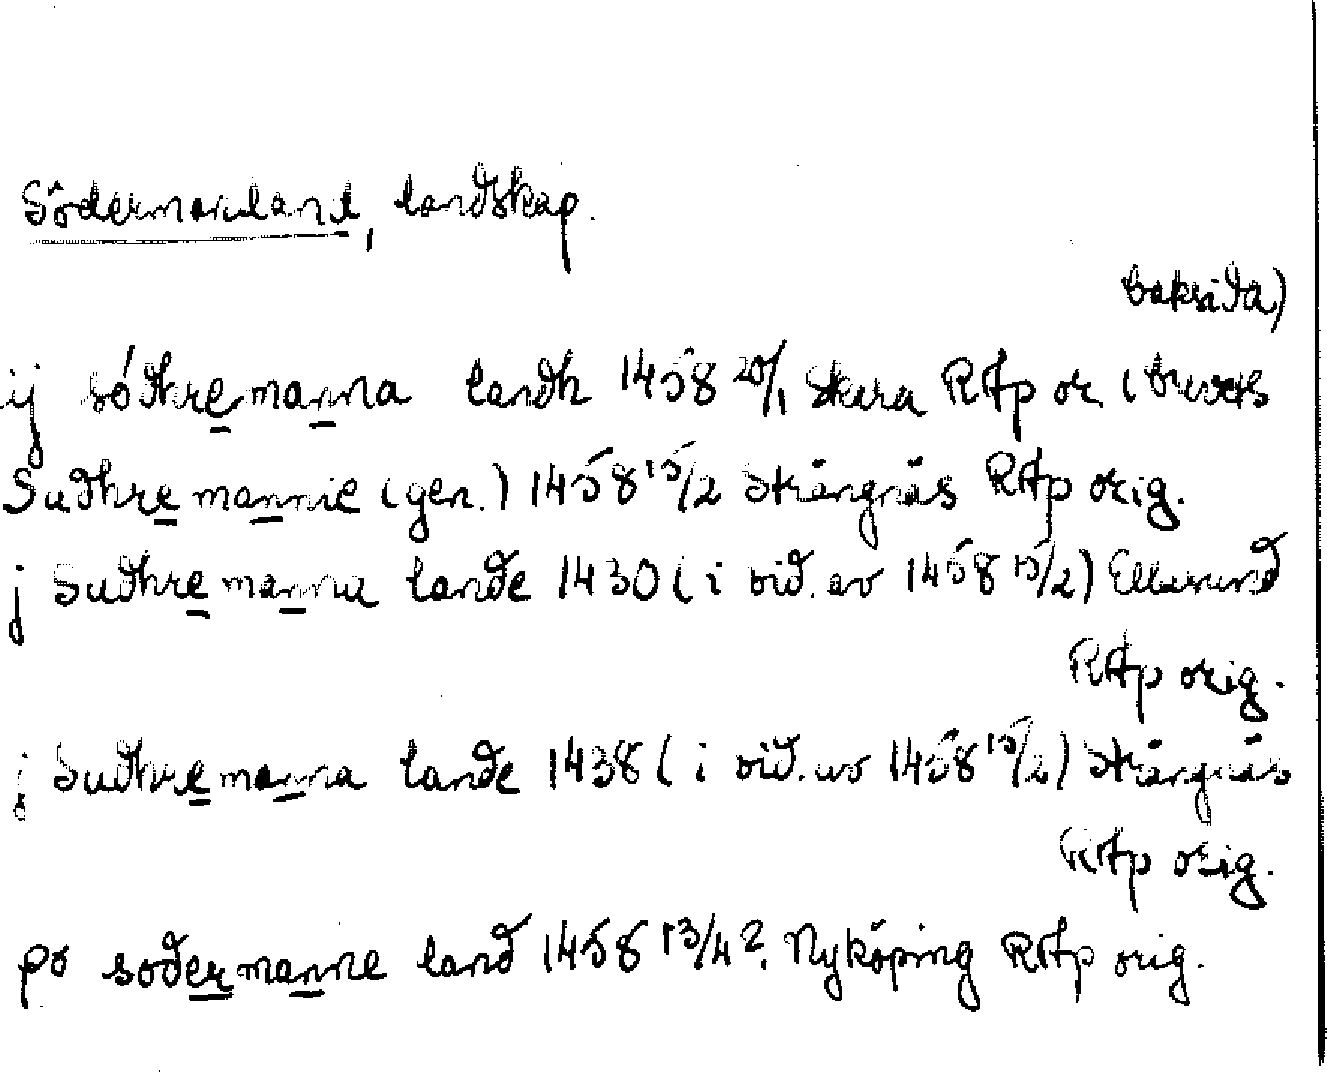 Södermanland, landskap.
baksida)
ij södhremanna landh 1458 20/1 Skara RAp or. (brevets
Sudhremannie (gen.) 1458 15/2 Strängnäs RAp orig.
j Sudhremanna lande 1430 (i vid. av 1458 15/2) Ellusund
RAp orig.
j Sudhremanna lande 1438 (i vid. av 1458 15/2) Strängnäs
RAp orig.
po sodermanne land 1458 13/4?. Nyköping RAp orig.